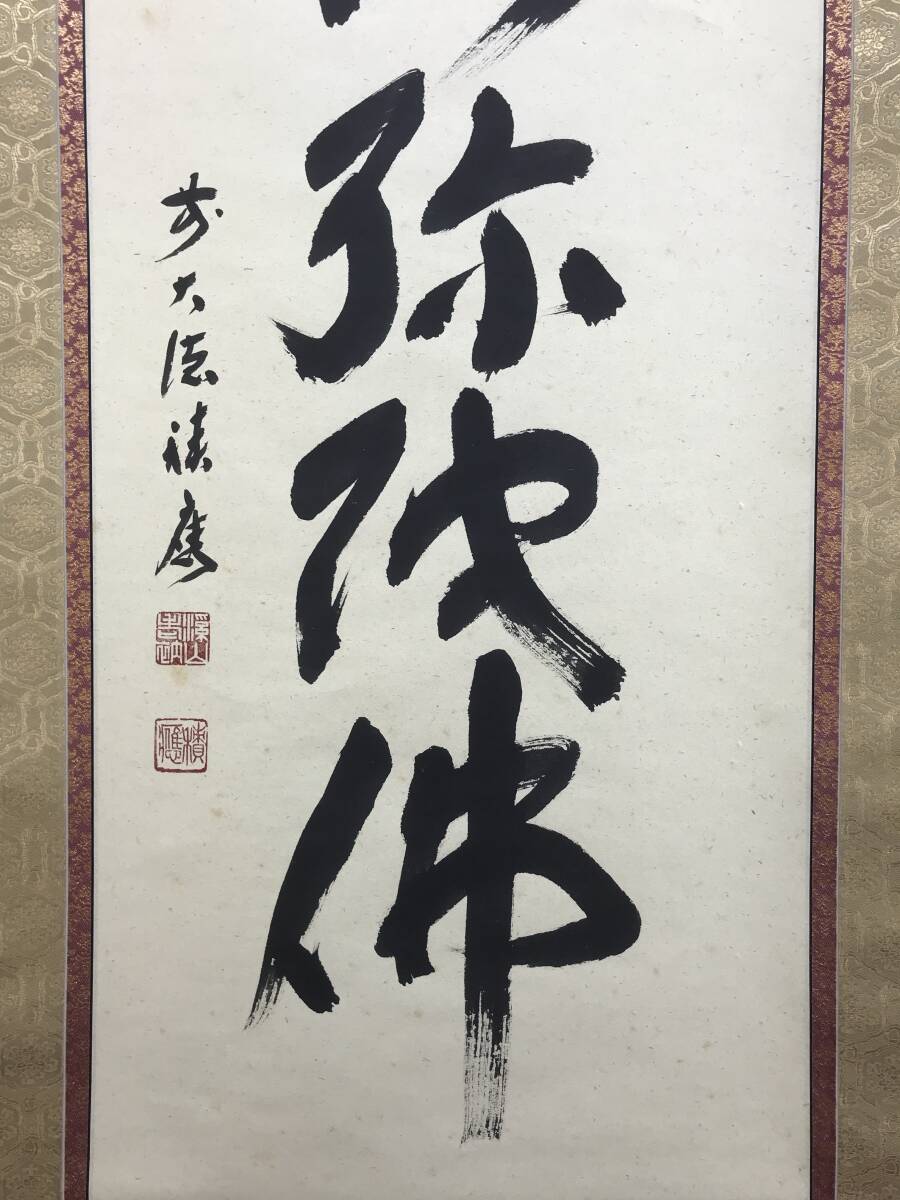 弥陀佛
前大徳積應
積應